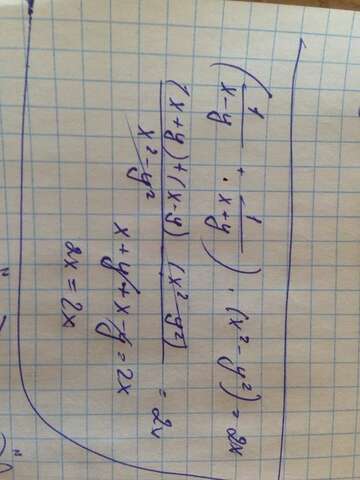 (1/(x-y) + 1/(x+y)) · (x²-y²) = 2x
((x+y)+(x-y) (x²-y²))/(x²-y²) = 2x
x+y+x-y=2x
2x=2x